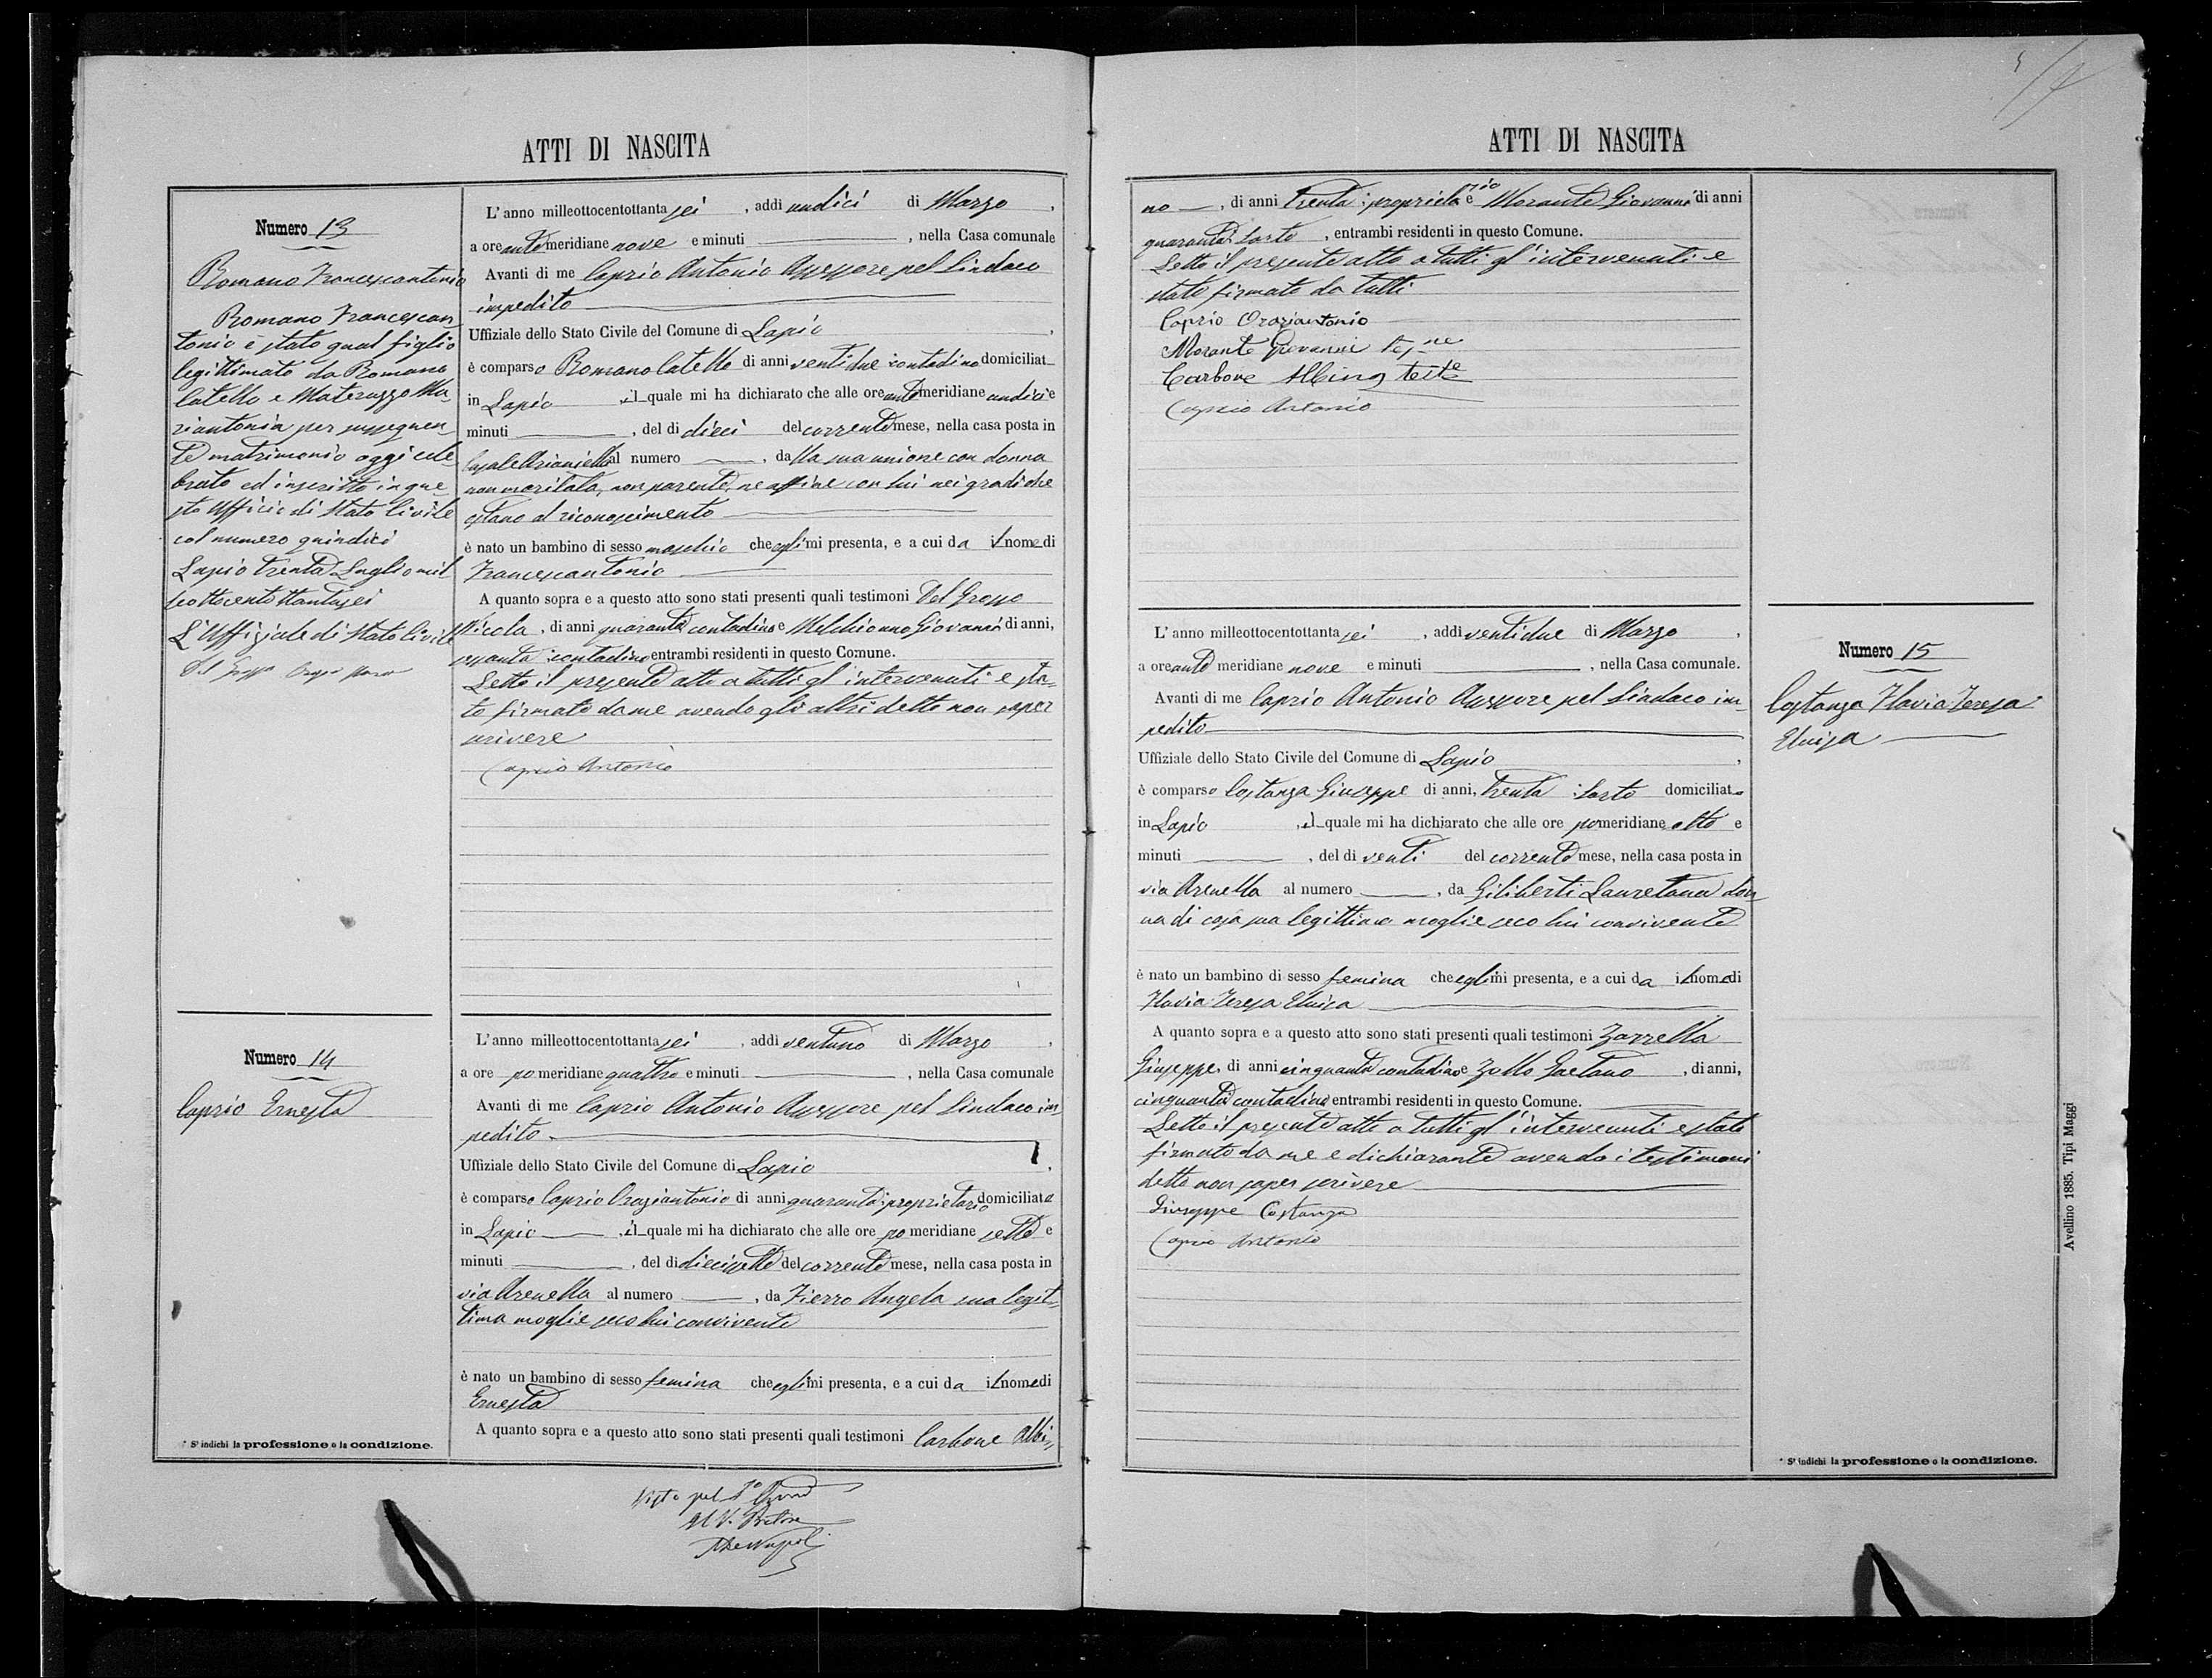 ATTI DI NASCITA
Numero 13
Romano Francescantonio
Romano Francescan
tonio è stato qual figlio
legittimato da Romano
Catello e Materazzo Ma-
riantonia per susseguen-
te matrimonio oggi cele-
brato ed inscritto in que-
sto Ufficio di Stato Civile
col numero quindici
Lapio trenta Luglio mil
leottocentottantasei
L'Uffiziale di Stato Civile
L'anno milleottocentottanta sei, addì undici di Marzo,
a ore ante meridiane nove e minuti, nella Casa comunale
Avanti di me Caprio Antonio Assessore pel Sindaco
impedito
Uffiziale dello Stato Civile del Comune di Lapio,
è comparso Romano Catello di anni ventidue contadino domiciliat
in Lapio, il quale mi ha dichiarato che alle ore ante meridiane undici e
minuti, del dì dieci del corrente mese, nella casa posta in
Casale al numero, dalla sua unione con donna
non maritata, non parente, ne affine con lui nei gradi che
ostano al riconoscimento
è nato un bambino di sesso maschio che egli mi presenta, e a cui da il nome di
Francescantonio
A quanto sopra e a questo atto sono stati presenti quali testimoni Del Grosso
Nicola, di anni quaranta contadino e Melchionno Giovanni di anni,
contadino entrambi residenti in questo Comune.
Letto il presente atto a tutti gl'intervenuti e sta-
to firmato da me avendo gli altri detto non saper
scrivere
Caprio Antonio
Numero 14
Caprio Ernesta
L'anno milleottocentottanta sei, addì ventuno di Marzo,
a ore po meridiane quattro e minuti, nella Casa comunale
Avanti di me Caprio Antonio Assessore pel Sindaco im
pedito
Uffiziale dello Stato Civile del Comune di Lapio,
è comparso Caprio Oraziantonio di anni quaranta: proprietario domiciliato
in Lapio, il quale mi ha dichiarato che alle ore po meridiane sette e
minuti, del dì diecisette del corrente mese, nella casa posta in
via Arenella al numero, da Fierro Angela sua legit-
tima moglie seco lui convivente
è nato un bambino di sesso femina che egli mi presenta, e a cui da il nome di
Ernesta
A quanto sopra e a questo atto sono stati presenti quali testimoni Carbone Albi-
* Si indichi la professione o la condizione.
Visto pel
Il V. Pretore
ATTI DI NASCITA
no, di anni trenta: proprietario e Morante Giovanni di anni
quaranta: sarto, entrambi residenti in questo Comune.
Letto il presente atto a tutti gl'intervenuti e
stato firmato da tutti
Caprio Oraziantonio
Morante Giovanni
Carbone Albino teste
Caprio Antonio
Numero 15
Costanza Flavia Teresa
Eluisa
L'anno milleottocentottanta sei, addì ventidue di Marzo,
a ore ante meridiane nove e minuti, nella Casa comunale.
Avanti di me Caprio Antonio Assessore pel Sindaco im-
pedito
Uffiziale dello Stato Civile del Comune di Lapio,
è comparso Costanza Giuseppe di anni, trenta: sarto domiciliato
in Lapio, il quale mi ha dichiarato che alle ore pomeridiane otto e
minuti, del dì venti del corrente mese, nella casa posta in
via Arenella al numero, da Giliberti Lauretana don
na di casa sua legittima moglie seco lui convivente
è nato un bambino di sesso femina che egli mi presenta, e a cui da il nome di
Flavia Teresa Eluisa
A quanto sopra e a questo atto sono stati presenti quali testimoni Zarrella
Giuseppe, di anni cinquanta contadino e Zollo Gaetano, di anni,
cinquanta contadino entrambi residenti in questo Comune.
Letto il presente atto a tutti gl'intervenuti e stato
firmato da me e dichiarante avendo i testimoni
detto non saper scrivere
Giuseppe Costanza
Caprio Antonio
* Si indichi la professione o la condizione.
Avellino 1885. Tipi Maggi